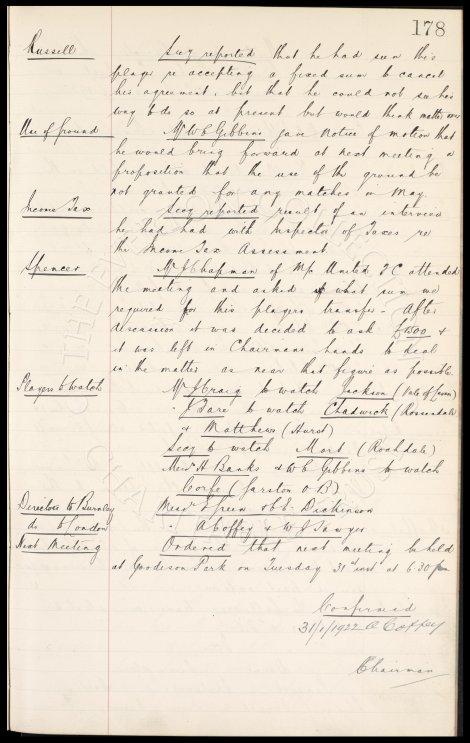 178
Russell Secy reported that he had seen this
player re accepting a fixed sum to cancel
his agreement, but that he could not see his
way to do so at present but would think matter over
Use of ground Mr W C Gibbins gave notice of motion that
he would bring forward at next meeting a
proposition that the use of the ground be
not granted for any matches in May.
Income Tax Secy reported result of an interview
he had had with Inspector of Taxes re
the Income Tax Assessment
Spencer Mr J Chapman of M/c United F C attended
the meeting and asked what sum we
required for this players transfer - After
discussion it was decided to ask £1500 &
it was left in Chairmans hands to deal
in the matter as near that figure as possible.
Players to Watch Mr J Craig to watch Jackson (Vale of Leven)
" J Fare to watch Chadwick (Rossendale
& Matthews (Hurst)
Secy to watch Mort (Rochdale)
Messrs H Banks & W C Gibbins to watch
Corfe (Garston O B)
Directors to Burnley Messrs Green & C. Dickinson
do to London " A Coffey & W J Sawyer
Next Meeting Ordered that next meeting be held
at Goodison Park on Tuesday 31st inst at 6.30 pm
Confirmed
31/1/1922 A Coffey
Chairman